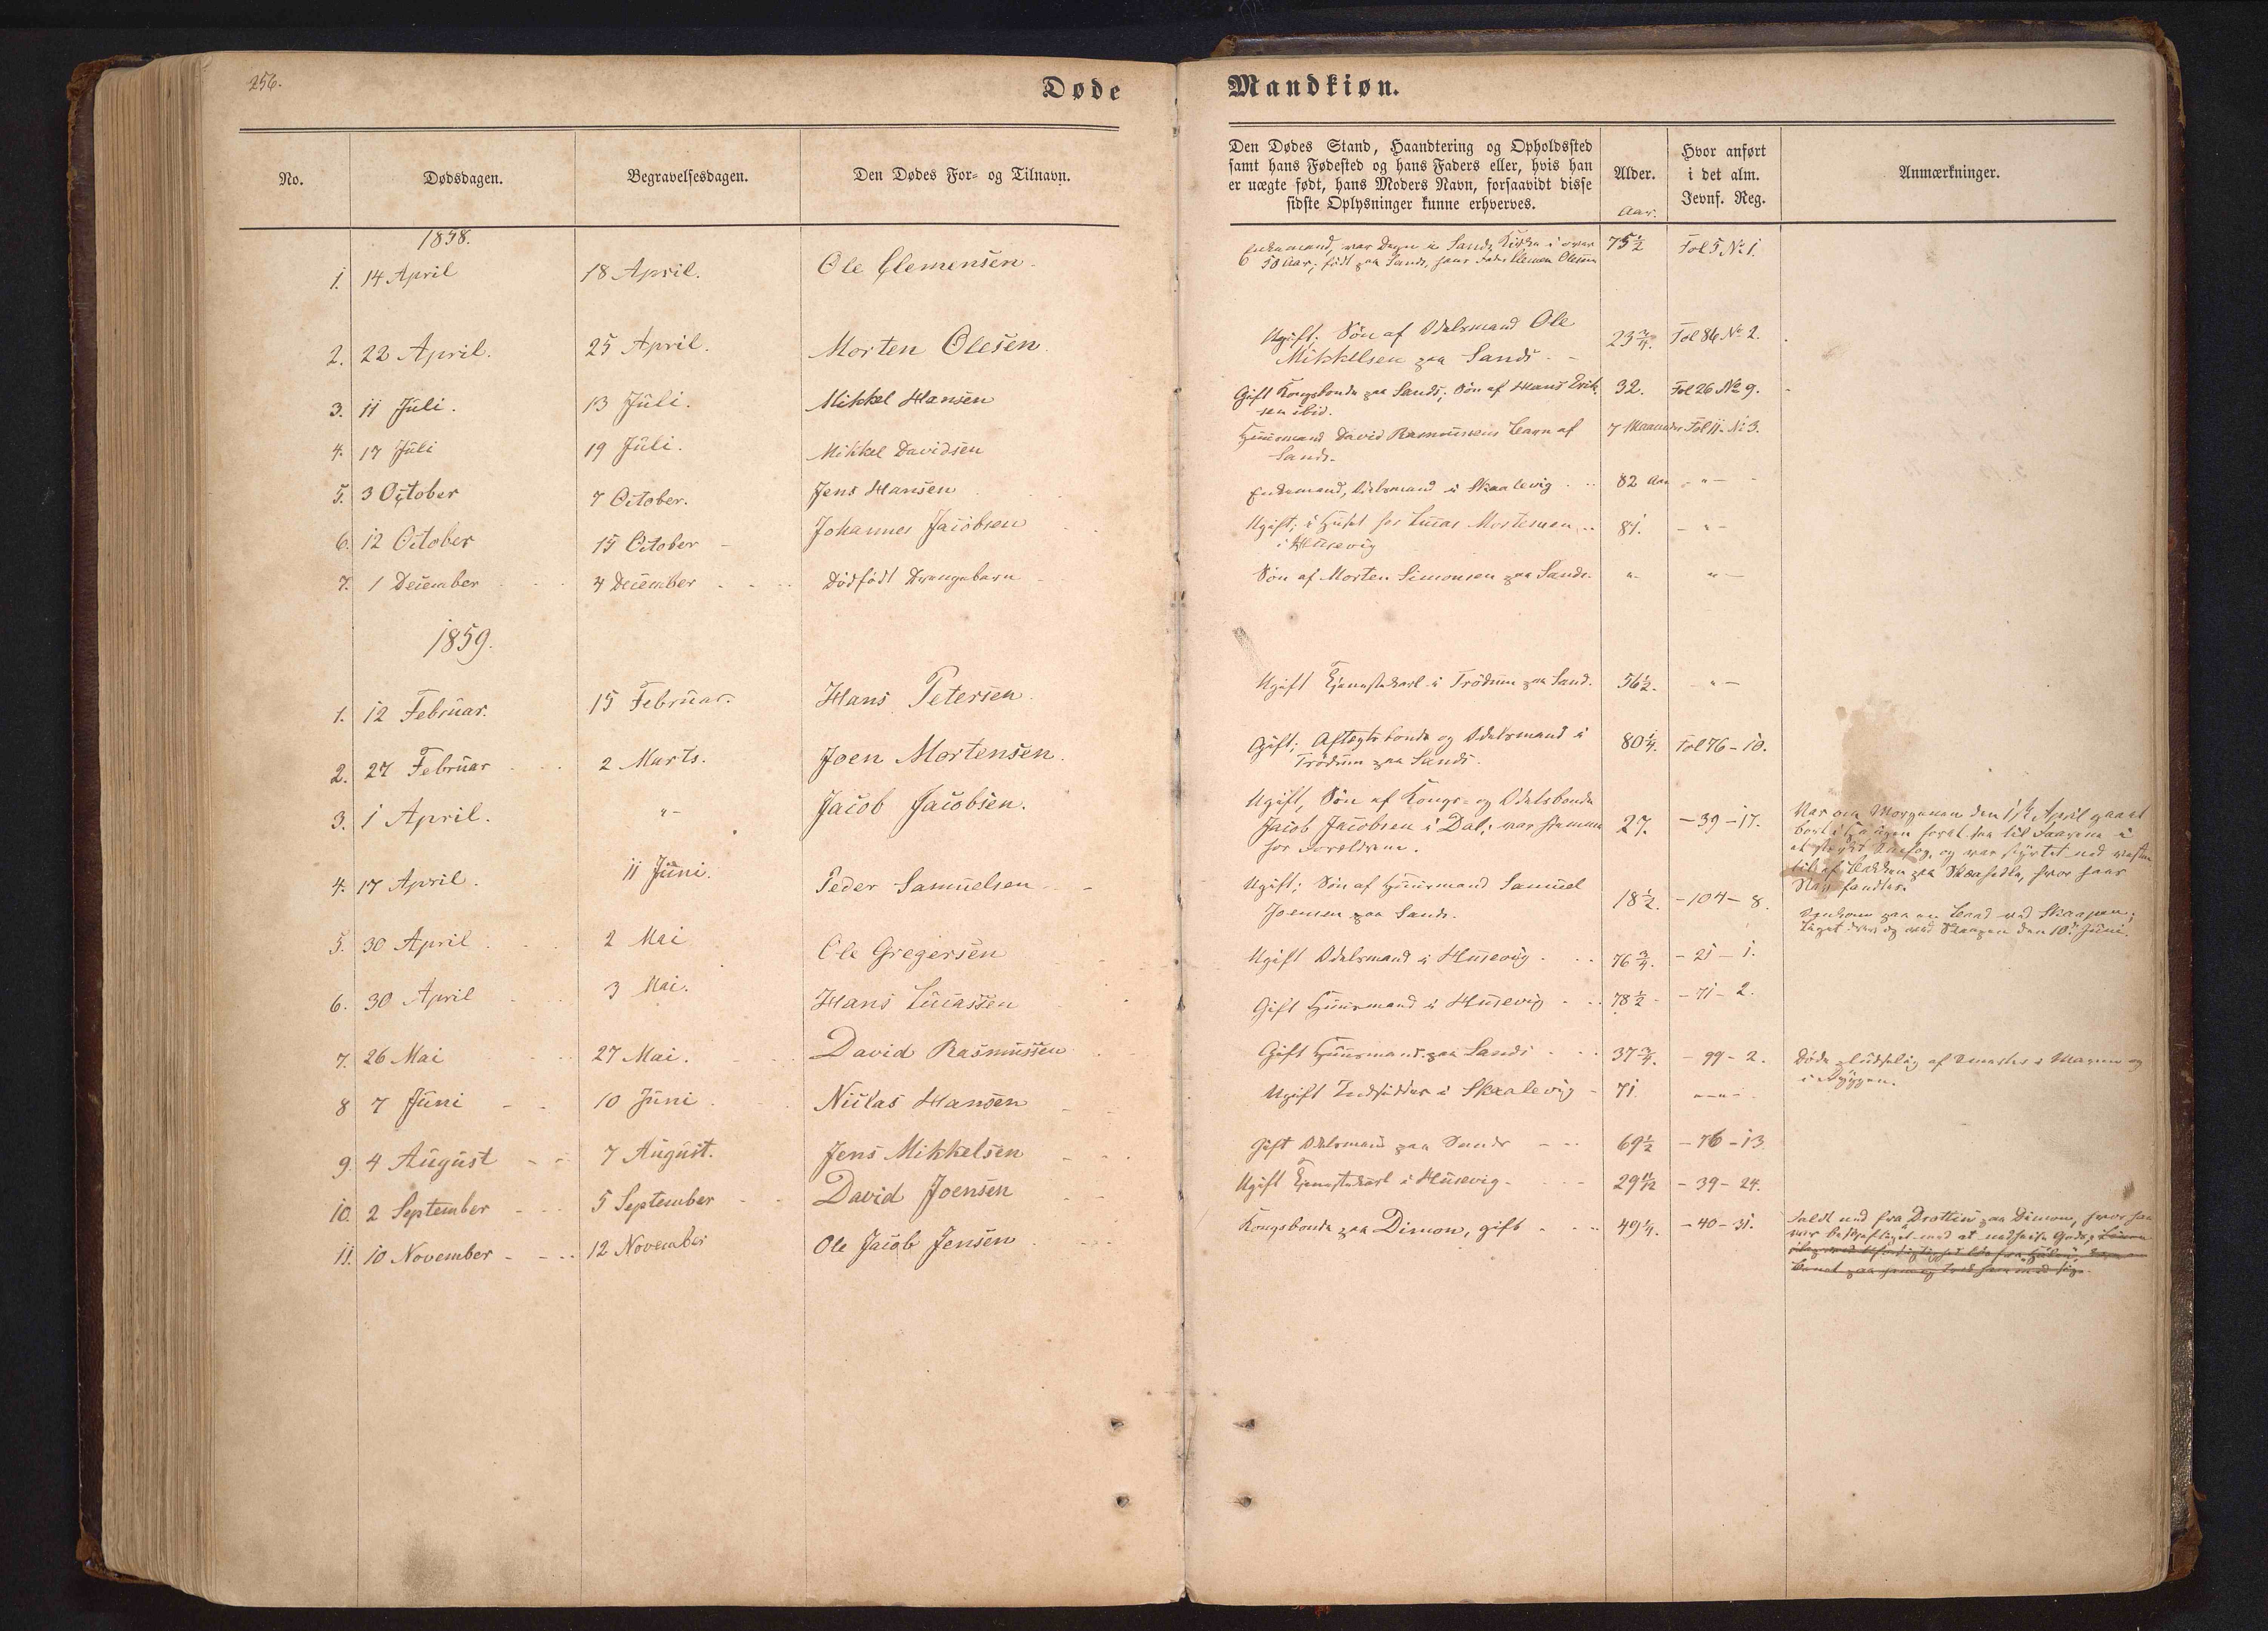 256.
Døde
Mandkiøn.
No.
Dødsdagen.
Begravelsesdagen.
Den Dødes For- og Tilnavn.
Den Dødes Stand, Haandtering og Opholdssted
samt hans Fødested og hans Faders eller, hvis han
er uægte født, hans Moders Navn, forsaavidt disse
sidste Oplysninger kunne erhverves.
Alder.
Aar.
Hvor anført
i det alm.
Jevnf. Reg.
Anmærkninger.
1858.
1. 14 April 18 April. Ole Clemensen
Enkemand, var Degn i Sands Kirke i over
50 Aar; født paa Sand, hans Fader Clemen Olesen
75½ Fol 5 № 1.
2. 22 April. 25 April. Morten Olesen
Ugift; Søn af Odelsmand Ole
Mikkelsen paa Sand.
23¾. Fol 86 № 2.
3. 11 Juli. 13 Juli. Mikkel Hansen
Gift Kongsbonde paa Sand; Søn af Hans Erik-
sen ibid.
32. Fol 26 № 9.
4. 17 Juli 19 Juli. Mikkel Davidsen
Huusmand David Rasmussens Barn af
Sand.
7 Maaneder Fol 11 № 3.
5. 3 October 7 October. Jens Hansen
Enkemand, Odelsmand i Skaalevig 82 Aar " -
6. 12 October 15 October - Johannes Jacobsen
Ugift; i Huset hos Lucas Mortensen
i Husevig
81. - " -
7. 1 December 4 December Dødfødt Drengebarn
Søn af Morten Simonsen paa Sand. " " -
1859.
1. 12 Februar. 15 Februar. Hans Petersen
Ugift Tjenestekarl i Trødum paa Sand. 56½. " -
2. 27 Februar 2 Marts. Joen Mortensen.
Gift; Aftægtsbonde og Odelsmand i
Trødum paa Sand.
80¼. Fol 76 - 10.
3. 1 April. " - Jacob Jacobsen.
Ugift, Søn af Kongs- og Odelsbonde
Jacob Jacobsen i Dal; var hjemme
hos Forældrene.
27. - 39 - 17.
Var om Morgenen den 1ste April gaaet
bort i Haugen for at see til Faarene i
og var styrtet ned
paa hvor hans
4. 17 April. 11 Juni. Peder Samuelsen
Ugift; Søn af Huusmand Samuel
Joensen paa Sand.
18½. - 104 - 8.
Omkom paa en Baad ved Skaapen;
den 10de Juni.
5. 30 April 2 Mai Ole Gregersen
Ugift Odelsmand i Husevig 76¾. - 21 - 1.
6. 30 April 3 Mai. Hans Lucassen
Gift Huusmand i Husevig 78½ - 71 - 2.
7. 26 Mai 27 Mai. David Rasmussen
Gift Huusmand paa Sand 37¾. - 99 - 2.
Døde pludselig af Smerter i Maven og
i Ryggen.
8 7 Juni 10 Juni Niclas Hansen
Ugift Indsidder i Skaalevig - 71. - " -
9. 4 August 7 August. Jens Mikkelsen
Gift Odelsmand paa Sand 69½ - 76 - 13
10. 2 September 5 September David Joensen
Ugift Tjenestekarl i Husevig 29 11/12 - 39 - 24.
11. 10 November 12 November Ole Jacob Jensen
Kongsbonde paa Dimon, gift 49¼. - 40 - 31.
Faldt ned fra Drottin paa Dimon, hvor han
var beskjæftiget med at nedheise Gods;